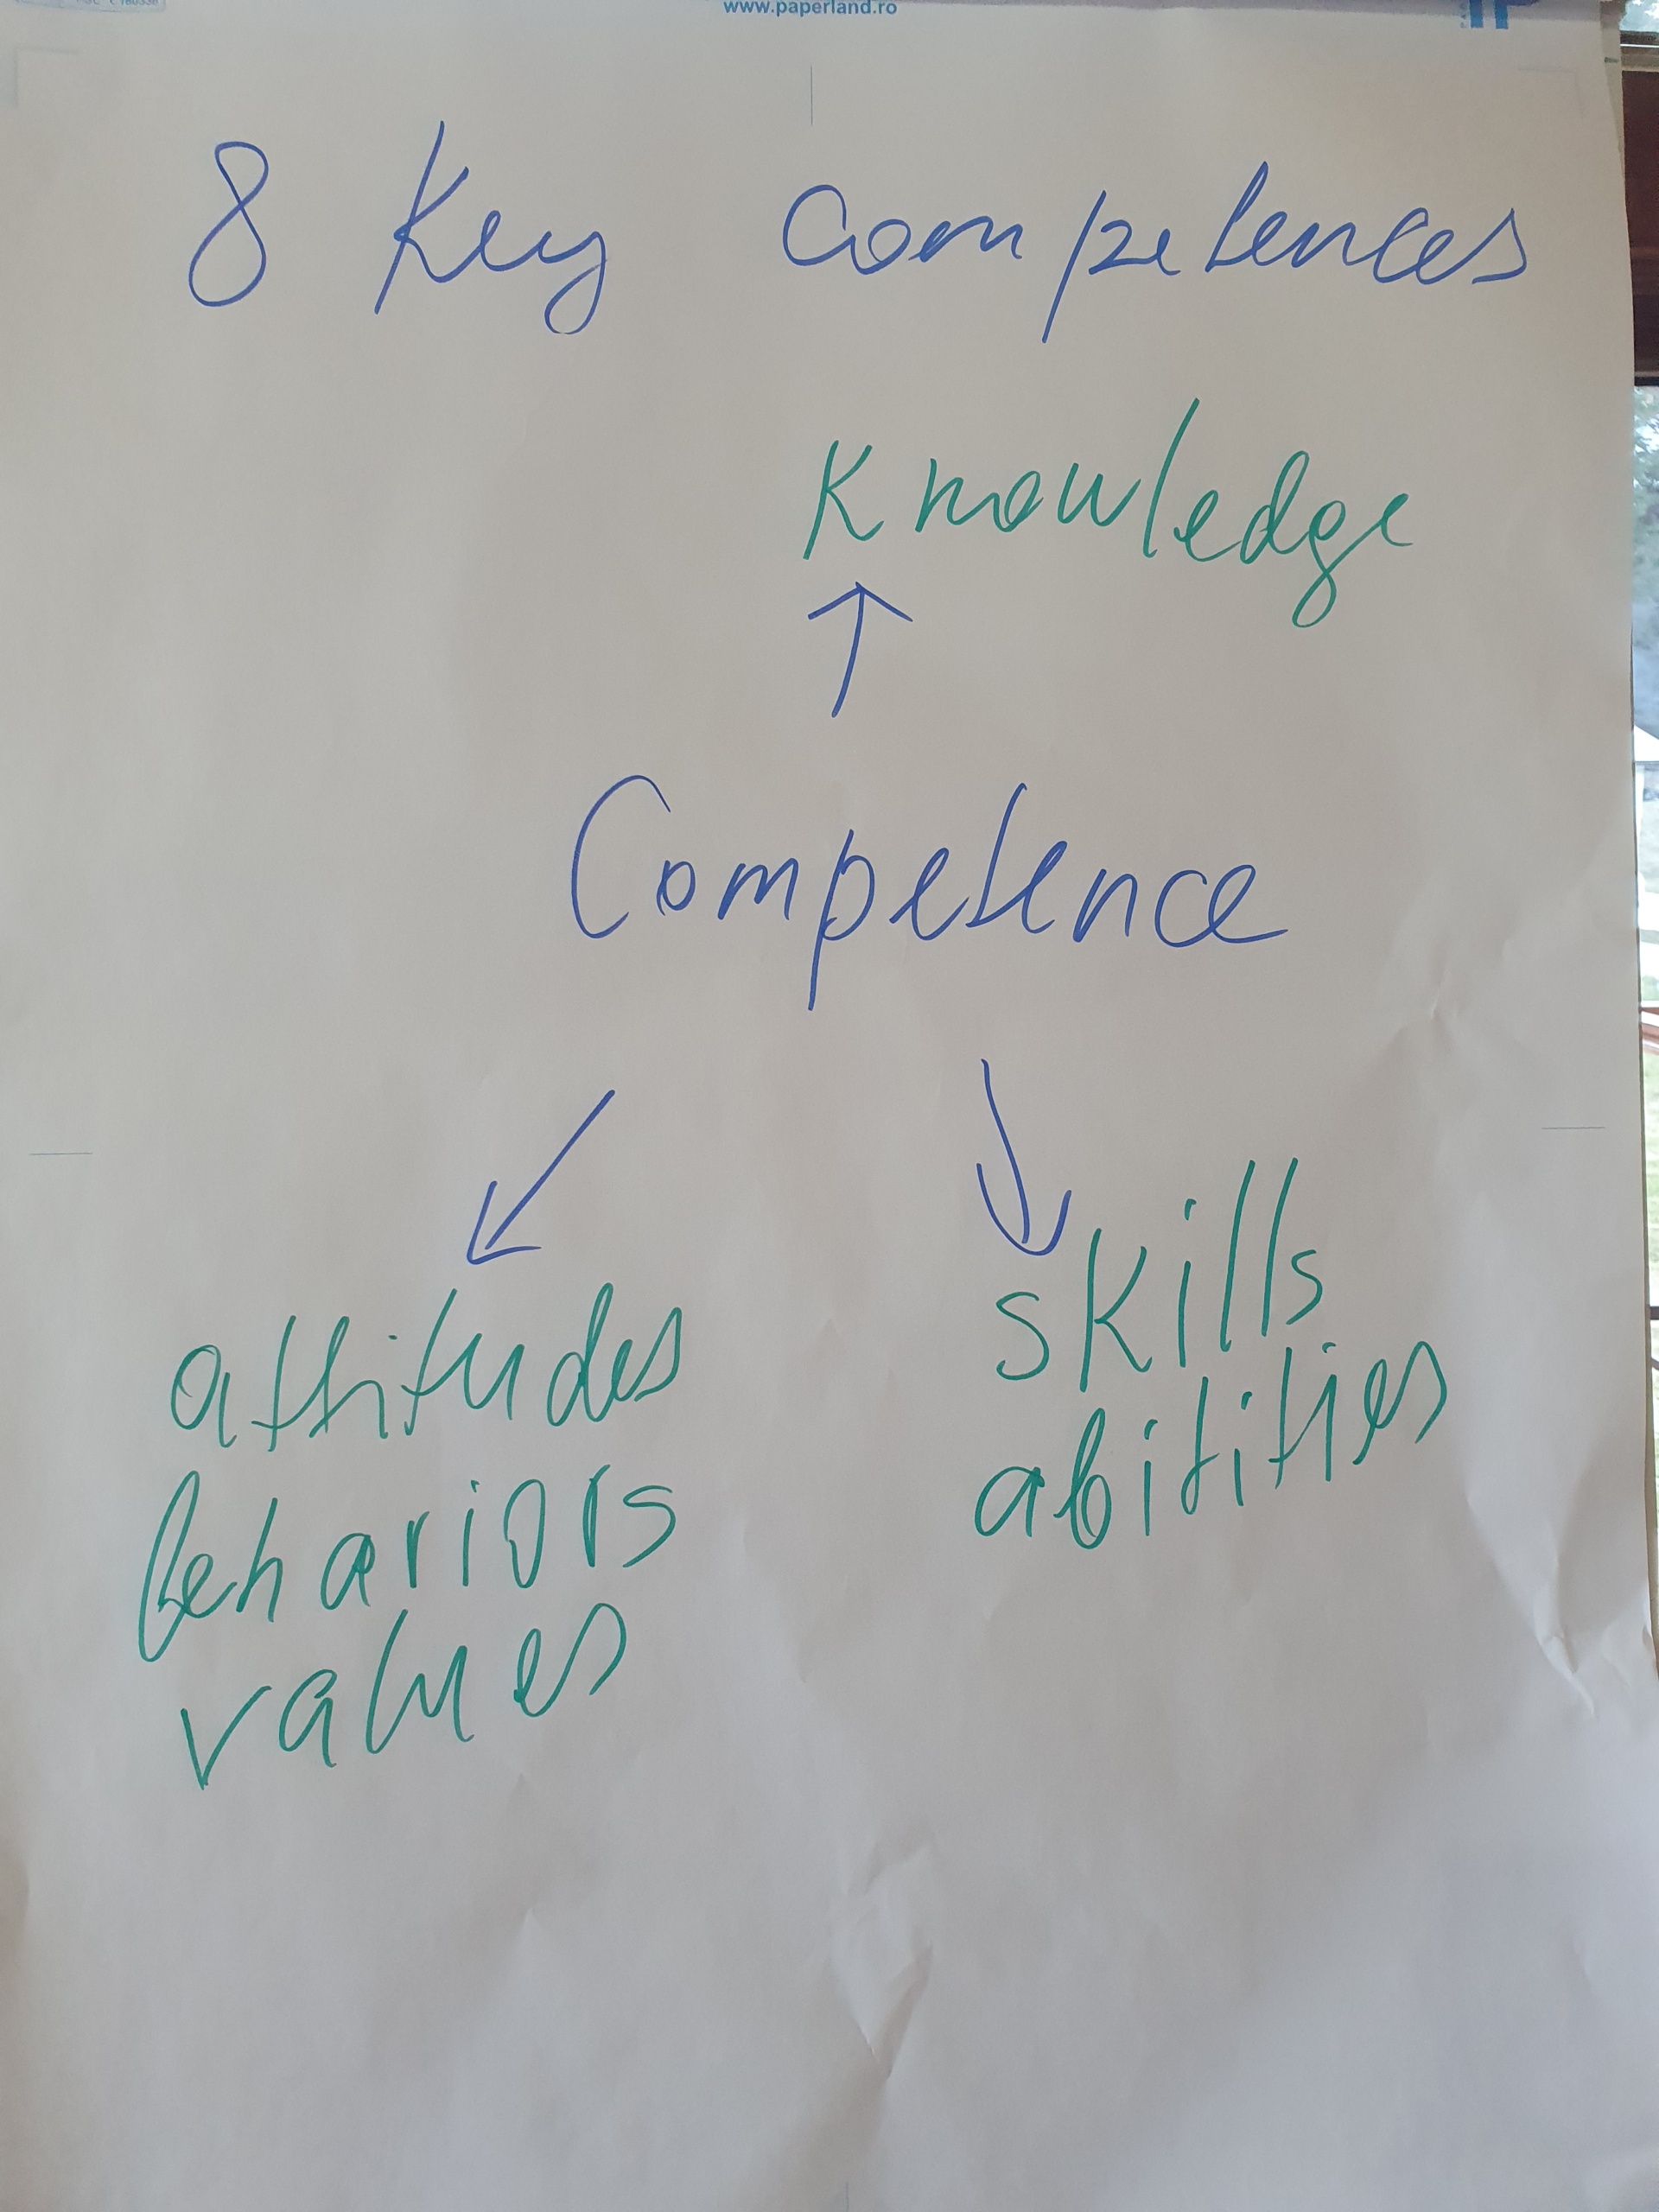 www.paperland.ro
8 Key competences
Knowledge
Competence
attitudes
behaviors
values
skills
abilities